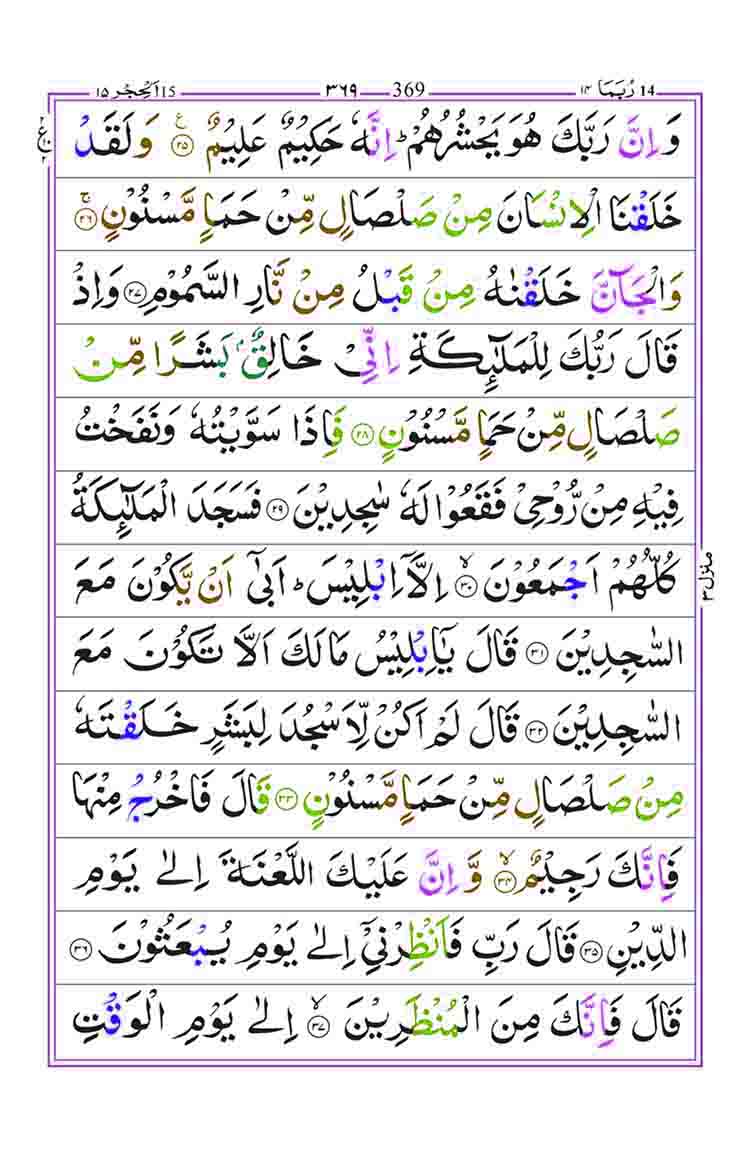 رُبَمَا ١٤ 14 369 ٣٦٩ اَلْحِجْر ١٥ 15
وَ اِنَّ رَبَّكَ هُوَ یَحْشُرُهُمْ ؕ اِنَّهٗ حَكِیْمٌ عَلِیْمٌ ۟ع ﴿۲۵﴾ وَ لَقَدْ
ع ۲
خَلَقْنَا الْاِنْسَانَ مِنْ صَلْصَالٍ مِّنْ حَمَاٍ مَّسْنُوْنٍ ۚ ﴿۲۶﴾
وَالْجَآنَّ خَلَقْنٰهُ مِنْ قَبْلُ مِنْ نَّارِ السَّمُوْمِ ﴿۲۷﴾ وَاِذْ
قَالَ رَبُّكَ لِلْمَلٰٓئِكَةِ اِنِّیْ خَالِقٌۢ بَشَرًا مِّنْ
صَلْصَالٍ مِّنْ حَمَاٍ مَّسْنُوْنٍ ﴿۲۸﴾ فَاِذَا سَوَّیْتُهٗ وَنَفَخْتُ
فِیْهِ مِنْ رُّوْحِیْ فَقَعُوْا لَهٗ سٰجِدِیْنَ ﴿۲۹﴾ فَسَجَدَ الْمَلٰٓئِكَةُ
كُلُّهُمْ اَجْمَعُوْنَ ۙ ﴿۳۰﴾ اِلَّاۤ اِبْلِیْسَ ؕ اَبٰۤی اَنْ یَّكُوْنَ مَعَ
منزل ۳
السّٰجِدِیْنَ ﴿۳۱﴾ قَالَ یٰۤاِبْلِیْسُ مَا لَكَ اَلَّا تَكُوْنَ مَعَ
السّٰجِدِیْنَ ﴿۳۲﴾ قَالَ لَمْ اَكُنْ لِّاَسْجُدَ لِبَشَرٍ خَلَقْتَهٗ
مِنْ صَلْصَالٍ مِّنْ حَمَاٍ مَّسْنُوْنٍ ﴿۳۳﴾ قَالَ فَاخْرُجْ مِنْهَا
فَاِنَّكَ رَجِیْمٌ ۙ ﴿۳۴﴾ وَّ اِنَّ عَلَیْكَ اللَّعْنَةَ اِلٰی یَوْمِ
الدِّیْنِ ﴿۳۵﴾ قَالَ رَبِّ فَاَنْظِرْنِیْۤ اِلٰی یَوْمِ یُبْعَثُوْنَ ﴿۳۶﴾
قَالَ فَاِنَّكَ مِنَ الْمُنْظَرِیْنَ ۙ ﴿۳۷﴾ اِلٰی یَوْمِ الْوَقْتِ